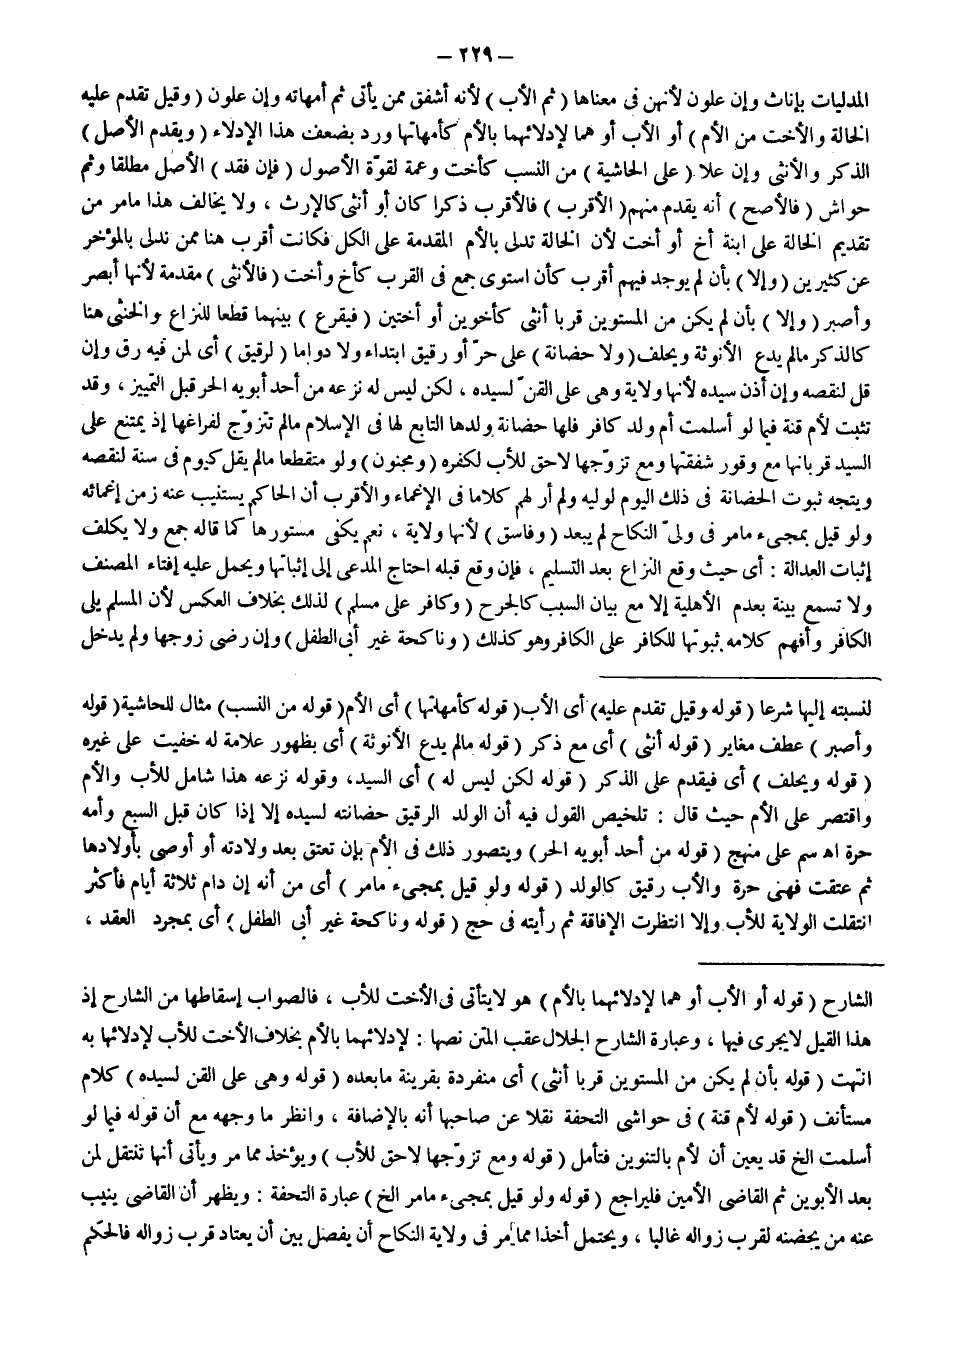 — ٢٢٩ —
المدليات بإناث وإن علون لأنهن فى معناها ( ثم الأب ) لأنه أشفق ممن يأتى ثم أمهاته وإن علون ( وقيل تقدم عليه
الخالة والأخت من الأم ) أو الأب أو هما لإدلائهما بالأم كأمهاتها ورد بضعف هذا الإدلاء ( ويقدم الأصل )
الذكر والأنثى وإن علا ( على الحاشية ) من النسب كأخت وعمة لقوّة الأصول ( فإن فقد ) الأصل مطلقا وثم
حواش ( فالأصح ) أنه يقدم منهم ( الأقرب ) فالأقرب ذكرا كان أو أنثى كالإرث ، ولا يخالف هذا مامر من
تقديم الخالة على ابنة أخ أو أخت لأن الخالة تدلى بالأم المقدمة على الكل فكانت أقرب هنا ممن تدلى بالمؤخر
عن كثيرين ( وإلا ) بأن لم يوجد فيهم أقرب كأن استوى جمع فى القرب كأخ وأخت ( فالأنثى ) مقدمة لأنها أبصر
وأصبر ( وإلا ) بأن لم يكن من المستوين قربا أنثى كأخوين أو أختين ( فيقرع ) بينهما قطعا للنزاع والخنثى هنا
كالذكر مالم يدع الأنوثة ويحلف ( ولا حضانة ) على حرّ أو رقيق ابتداء ولا دواما ( لرقيق ) أى لمن فيه رق وإن
قل لنقصه وإن أذن سيده لأنها ولاية وهى على القنّ لسيده ، لكن ليس له نزعه من أحد أبويه الحر قبل التمييز ، وقد
تثبت لأم قنة فيما لو أسلمت أم ولد كافر فلها حضانة ولدها التابع لها فى الإسلام مالم تتزوّج لفراغها إذ يمتنع على
السيد قربانها مع وفور شفقتها ومع تزوّجها لاحق للأب لكفره ( ومجنون ) ولو متقطعا مالم يقل كيوم فى سنة لنقصه
ويتجه ثبوت الحضانة فى ذلك اليوم لوليه ولم أر لهم كلاما فى الإغماء والأقرب أن الحاكم يستنيب عنه زمن إغمائه
ولو قيل بمجىء مامر فى ولىّ النكاح لم يبعد ( وفاسق ) لأنها ولاية ، نعم يكفى مستورها كما قاله جمع ولا يكلف
إثبات العدالة : أى حيث وقع النزاع بعد التسليم ، فإن وقع قبله احتاج المدعى إلى إثباتها ويحمل عليه إفتاء المصنف
ولا تسمع بينة بعدم الأهلية إلا مع بيان السبب كالجرح ( وكافر على مسلم ) لذلك بخلاف العكس لأن المسلم يلى
الكافر وأفهم كلامه ثبوتها للكافر على الكافر وهو كذلك ( وناكحة غير أبى الطفل ) وإن رضى زوجها ولم يدخل
لنسبته إليها شرعا ( قوله وقيل تقدم عليه) أى الأب( قوله كأمهاتها ) أى الأم( قوله من النسب) مثال للحاشية( قوله
وأصبر ) عطف مغاير ( قوله أنثى ) أى مع ذكر ( قوله مالم يدع الأنوثة ) أى بظهور علامة له خفيت على غيره
( قوله ويحلف ) أى فيقدم على الذكر ( قوله لكن ليس له ) أى السيد، وقوله نزعه هذا شامل للأب والأم
واقتصر على الأم حيث قال : تلخيص القول فيه أن الولد الرقيق حضانته لسيده إلا إذا كان قبل السبع وأمه
حرة اه سم على منهج ( قوله من أحد أبويه الحر) ويتصور ذلك فى الأم بإن تعتق بعد ولادته أو أوصى بأولادها
ثم عتقت فهى حرة والأب رقيق كالولد ( قوله ولو قيل بمجىء مامر ) أى من أنه إن دام ثلاثة أيام فأكثر
انتقلت الولاية للأب وإلا انتظرت الإفاقة ثم رأيته فى حج ( قوله وناكحة غير أبى الطفل ) أى بمجرد العقد ،
الشارح ( قوله أو الأب أو هما لإدلائهما بالأم ) هو لايتأتى فى الأخت للأب ، فالصواب إسقاطها من الشارح إذ
هذا القيل لايجرى فيها ، وعبارة الشارح الجلال عقب المتن نصها : لإدلائهما بالأم بخلاف الأخت للأب لإدلائها به
انتهت ( قوله بأن لم يكن من المستوين قربا أنثى) أى منفردة بقرينة مابعده ( قوله وهى على القن لسيده ) كلام
مستأنف ( قوله لأم قنة ) فى حواشى التحفة نقلا عن صاحبها أنه بالإضافة ، وانظر ما وجهه مع أن قوله فيما لو
أسلمت الخ قد يعين أن لأم بالتنوين فتأمل ( قوله ومع تزوّجها لاحق للأب ) ويؤخذ مما مر ويأتى أنها تنتقل لمن
بعد الأبوين ثم القاضى الأمين فليراجع ( قوله ولو قيل بمجىء مامر الخ ) عبارة التحفة : ويظهر أن القاضى ينيب
عنه من يحضنه لقرب زواله غالبا ، ويحتمل أخذا مما مر فى ولاية النكاح أن يفصل بين أن يعتاد قرب زواله فالحكم